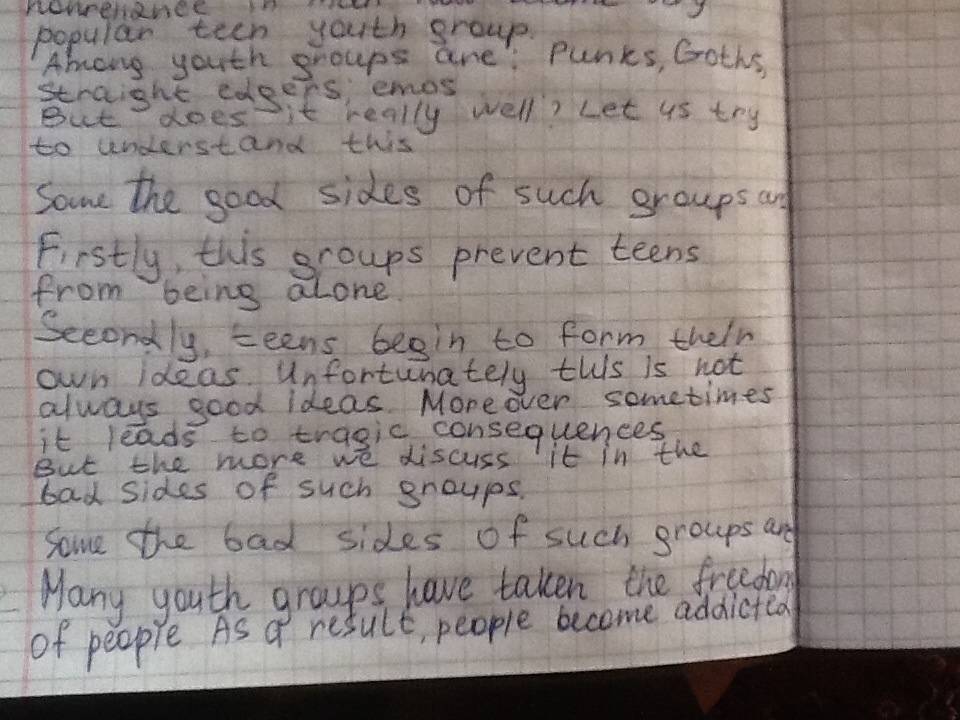 in
popular teen youth group.
Among youth groups are: Punks, Goths,
straight edgers, emos
But does it really well? Let us try
to understand this
Some the good sides of such groups are
Firstly, this groups prevent teens
from being alone.
Secondly, teens begin to form their
own ideas. Unfortunately this is not
always good ideas. Moreover sometimes
it leads to tragic consequences
But the more we discuss it in the
bad sides of such groups.
Some the bad sides of such groups are
Many youth groups have taken the freedom
of people As a result, people become addicted